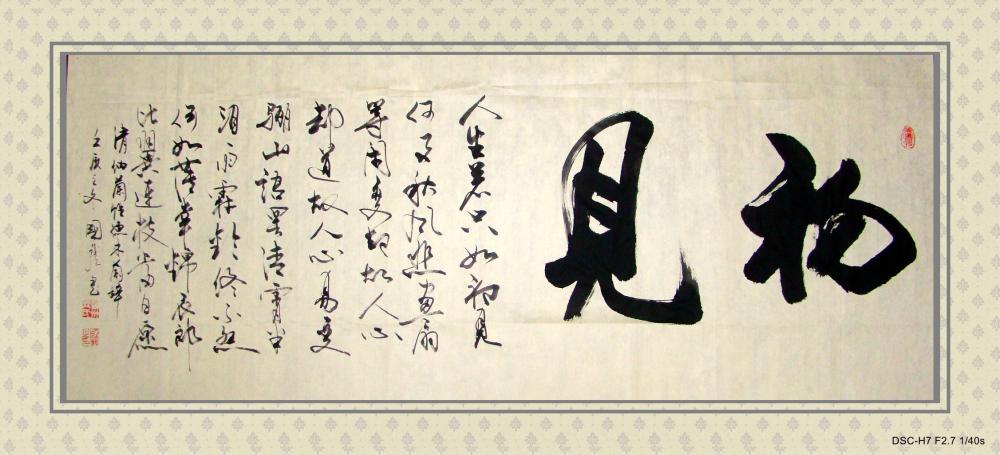 初見
人生若只如初見
何事秋風悲画扇
等闲变却故人心
却道故人心易变
驪山語罷清宵半
泪雨霖鈴终不怨
何如薄幸錦衣郎
比翼連枝當日願
清纳蘭性德木蘭辞
國
DSC-H7 F2.7 1/40s